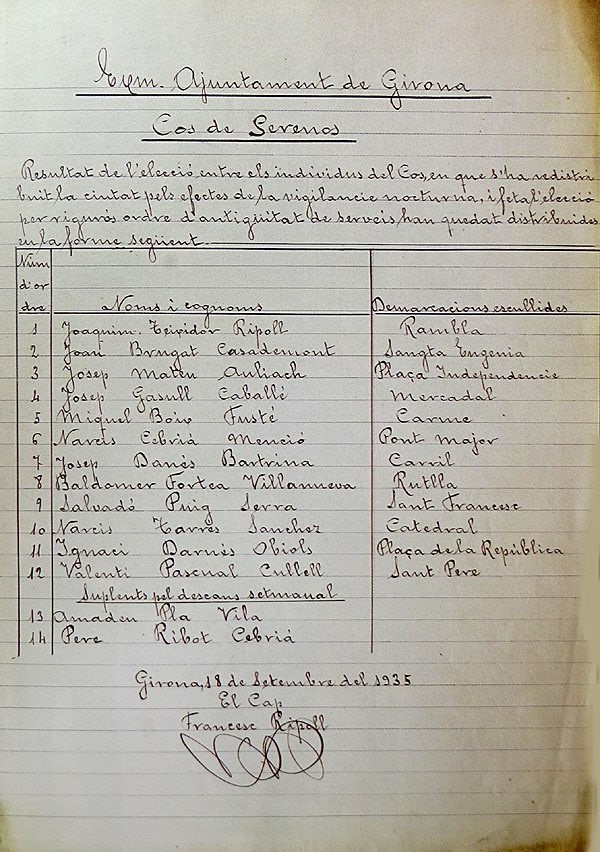 Exm. Ajuntament de Girona
Cos de Serenos
Resultat de l'elecció entre els individus del Cos, en que s'ha redistri
buit la ciutat pels efectes de la vigilancie nocturna, i feta l'elecció
per rigurós ordre d'antigüitat de serveis han quedat distribuides
en la forme següent.
Núm
d'or
dre Noms i cognoms Demarcacions escullides
1 Joaquim Teixidor Ripoll Rambla
2 Joan Brugat Casademont Sangta Eugenia
3 Josep Mateu Auliach Plaça Independencie
4 Josep Gasull Caballé Mercadal
5 Miquel Boix Fusté Carme
6 Narcís Cebrià Menció Pont Major
7 Josep Danés Bartrina Carril
8 Baldomer Fortea Villanueva Rutlla
9 Salvadó Puig Serra Sant Francesc
10 Narcis Tarrés Sanchez Catedral
11 Ignaci Barnés Obiols Plaça de la República
12 Valentí Pascual Cullell Sant Pere
Suplents pel descans setmanal
13 Amadeu Pla Vila
14 Pere Ribot Cebrià
Girona, 18 de Setembre del 1935
El Cap
Francesc Ripoll